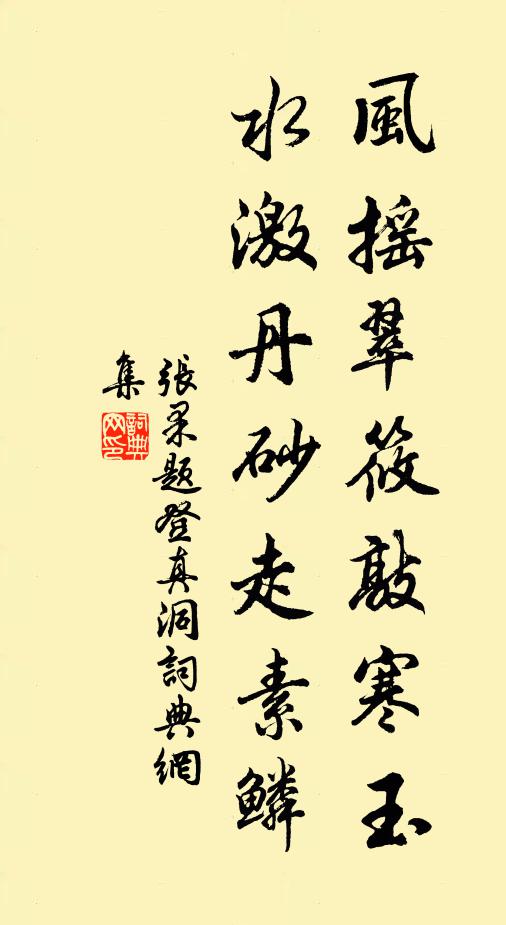 風搖翠筱敲寒玉
水激丹砂走素鱗
張杲題登真洞詞典網
集
詞典网印